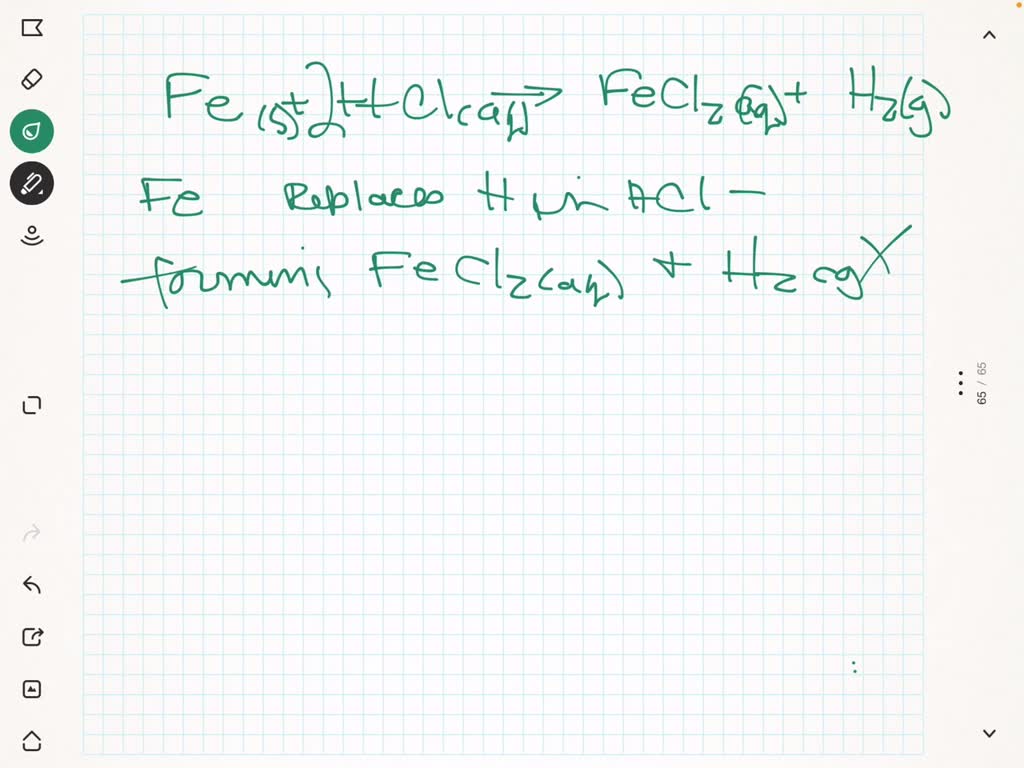 Fe(s) + 2HCl(aq) → FeCl2(aq) + H2(g)
Fe Replaces H in HCl —
forming FeCl2(aq) + H2(g)
65 / 65